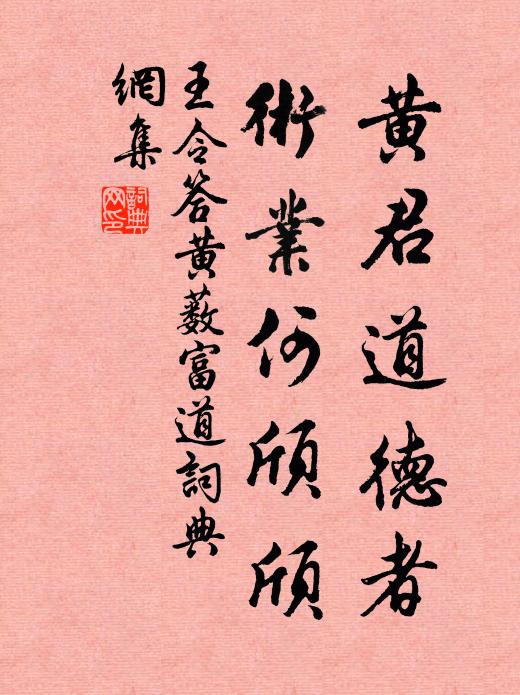 黄君道德者
術業何頎頎
王令答黄薮富道詞典
網集
詞典
网印